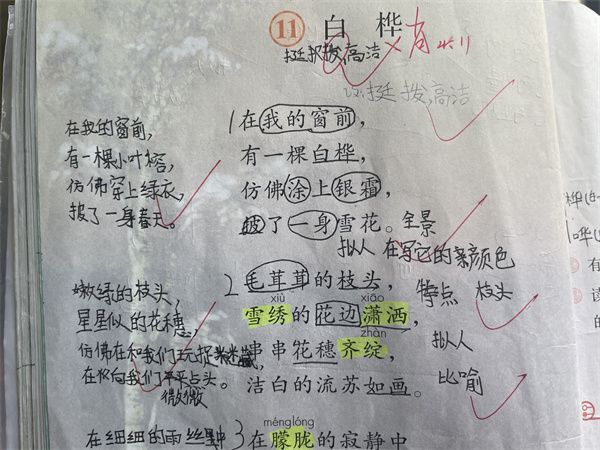 11 白桦
挺拔 高洁
挺拔,高洁
在我的窗前,
有一棵小叶榕,
仿佛穿上绿衣,
披了一身春天。
1在我的窗前,
有一棵白桦,
仿佛涂上银霜,
披了一身雪花。全景
拟人 在写它的颜色
嫩绿的枝头,
星星似的花穗,
仿佛在和我们玩捉迷藏,
在枝向我们平平点头。
微微
2毛茸茸的枝头, 特点 枝头
xiù xiāo
雪绣的花边潇洒, 拟人
zhàn
串串花穗齐绽,
洁白的流苏如画。 比喻
在细细的雨丝中
ménglóng
3在朦胧的寂静中
桦
有
读